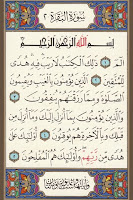 سُورَةُ البَقَرَةِ ٢
بِسْمِ اللَّهِ الرَّحْمَٰنِ الرَّحِيمِ
الٓمٓ ذَٰلِكَ الْكِتَٰبُ لَا رَيْبَ فِيهِ هُدًى
لِلْمُتَّقِينَ الَّذِينَ يُؤْمِنُونَ بِالْغَيْبِ وَيُقِيمُونَ
الصَّلَوٰةَ وَمِمَّا رَزَقْنَٰهُمْ يُنْفِقُونَ
وَالَّذِينَ يُؤْمِنُونَ بِمَا أُنْزِلَ إِلَيْكَ وَمَا أُنْزِلَ مِنْ
قَبْلِكَ وَبِالْآخِرَةِ هُمْ يُوقِنُونَ أُولَٰئِكَ عَلَىٰ
هُدًى مِنْ رَبِّهِمْ وَأُولَٰئِكَ هُمُ الْمُفْلِحُونَ